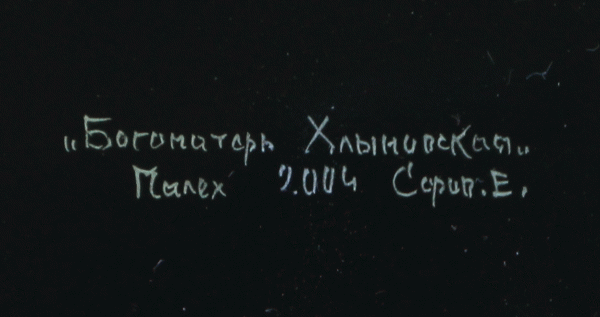 „Богоматерь Хлыновская„
Палех 2.004 Серов.Е.